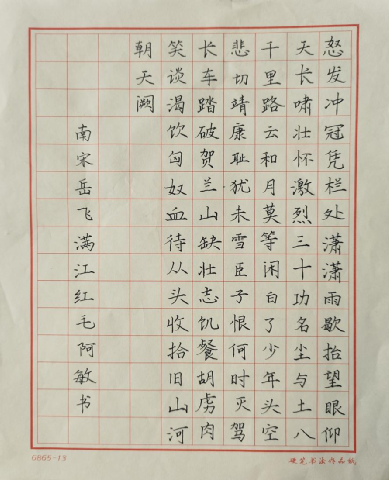 怒发冲冠凭栏处潇潇雨歇抬望眼仰
天长啸壮怀激烈三十功名尘与土八
千里路云和月莫等闲白了少年头空
悲切靖康耻犹未雪臣子恨何时灭驾
长车踏破贺兰山缺壮志饥餐胡虏肉
笑谈渴饮匈奴血待从头收拾旧山河
朝天阙
南宋岳飞满江红毛阿敏书
GB65-13
硬笔书法作品纸